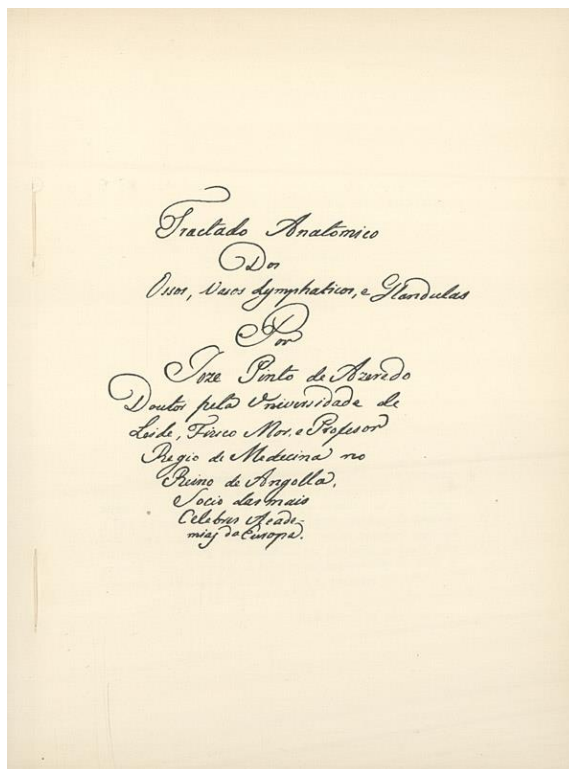 Tractado Anatomico
Dos
Ossos, Vasos Lymphaticos, e Glandulas
Por
Joze Pinto de Azeredo
Doutor pela Universidade de
Leide, Fizico Mor, e Profesor
Regio de Medecina no
Reino de Angolla,
Socio das mais
Celebres Acade-
mias da Europa.